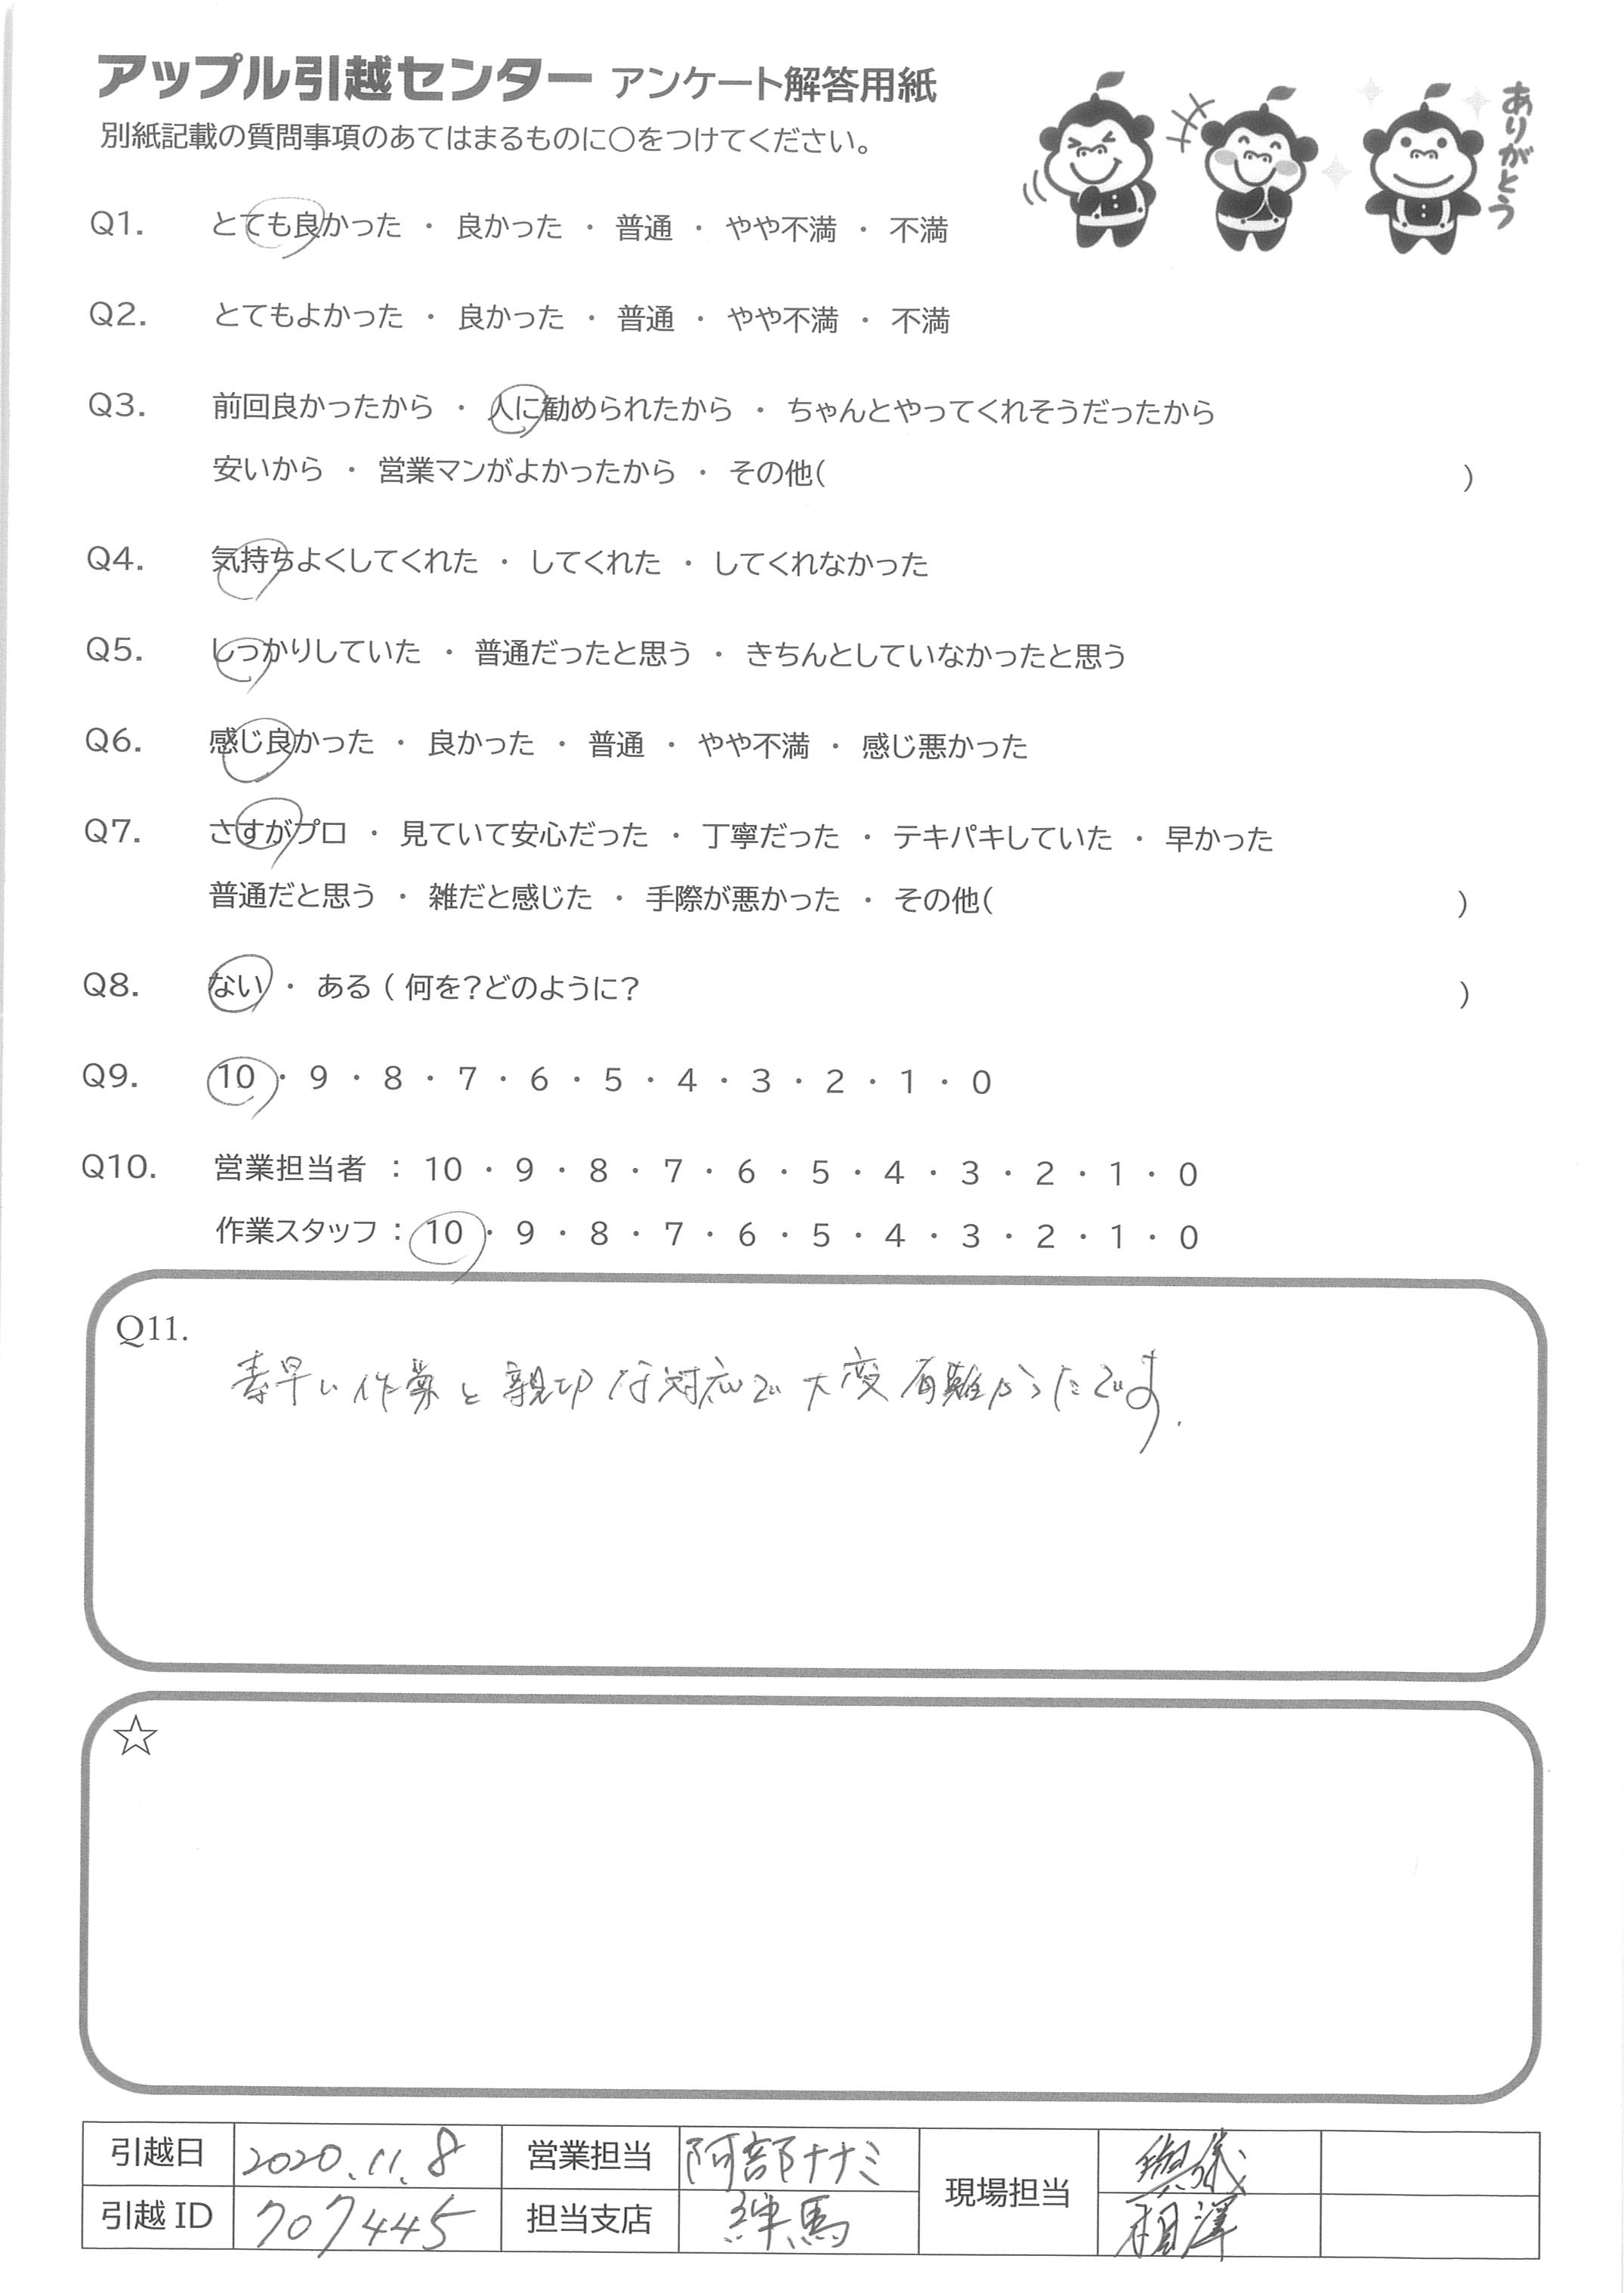 アップル引越センター アンケート解答用紙
別紙記載の質問事項のあてはまるものに○をつけてください。
ありがとう
Q1. とても良かった ・ 良かった ・ 普通 ・ やや不満 ・ 不満
Q2. とてもよかった ・ 良かった ・ 普通 ・ やや不満 ・ 不満
Q3. 前回良かったから ・ 人に勧められたから ・ ちゃんとやってくれそうだったから
安いから ・ 営業マンがよかったから ・ その他( )
Q4. 気持ちよくしてくれた ・ してくれた ・ してくれなかった
Q5. しっかりしていた ・ 普通だったと思う ・ きちんとしていなかったと思う
Q6. 感じ良かった ・ 良かった ・ 普通 ・ やや不満 ・ 感じ悪かった
Q7. さすがプロ ・ 見ていて安心だった ・ 丁寧だった ・ テキパキしていた ・ 早かった
普通だと思う ・ 雑だと感じた ・ 手際が悪かった ・ その他( )
Q8. ない ・ ある ( 何を?どのように? )
Q9. 10 ・ 9 ・ 8 ・ 7 ・ 6 ・ 5 ・ 4 ・ 3 ・ 2 ・ 1 ・ 0
Q10. 営業担当者 : 10 ・ 9 ・ 8 ・ 7 ・ 6 ・ 5 ・ 4 ・ 3 ・ 2 ・ 1 ・ 0
作業スタッフ : 10 ・ 9 ・ 8 ・ 7 ・ 6 ・ 5 ・ 4 ・ 3 ・ 2 ・ 1 ・ 0
Q11.
素早い作業と親切な対応で大変有難かったです.
☆
引越日 2020.11.8 営業担当 阿部ナナミ 現場担当
引越 ID 707445 担当支店 練馬 相澤